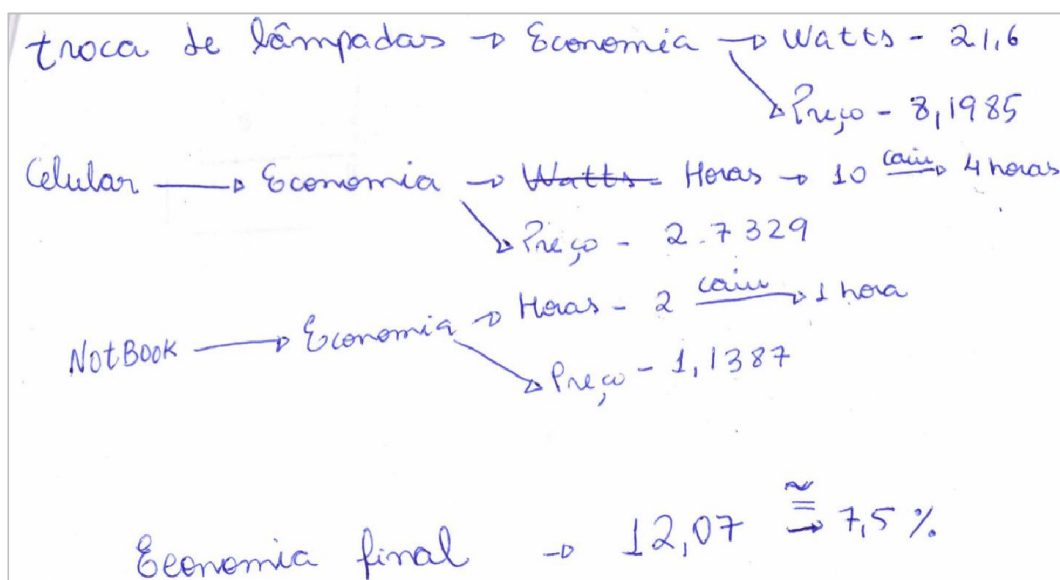 troca de lâmpadas → Economia → Watts - 21,6
→ Preço - 8,1985
Celular → Economia → Watts - Horas → 10 caiu → 4 horas
→ Preço - 2.7329
NotBook → Economia → Horas - 2 caiu → 1 hora
→ Preço - 1,1387
Economia final → 12,07 ≅ → 7,5 %